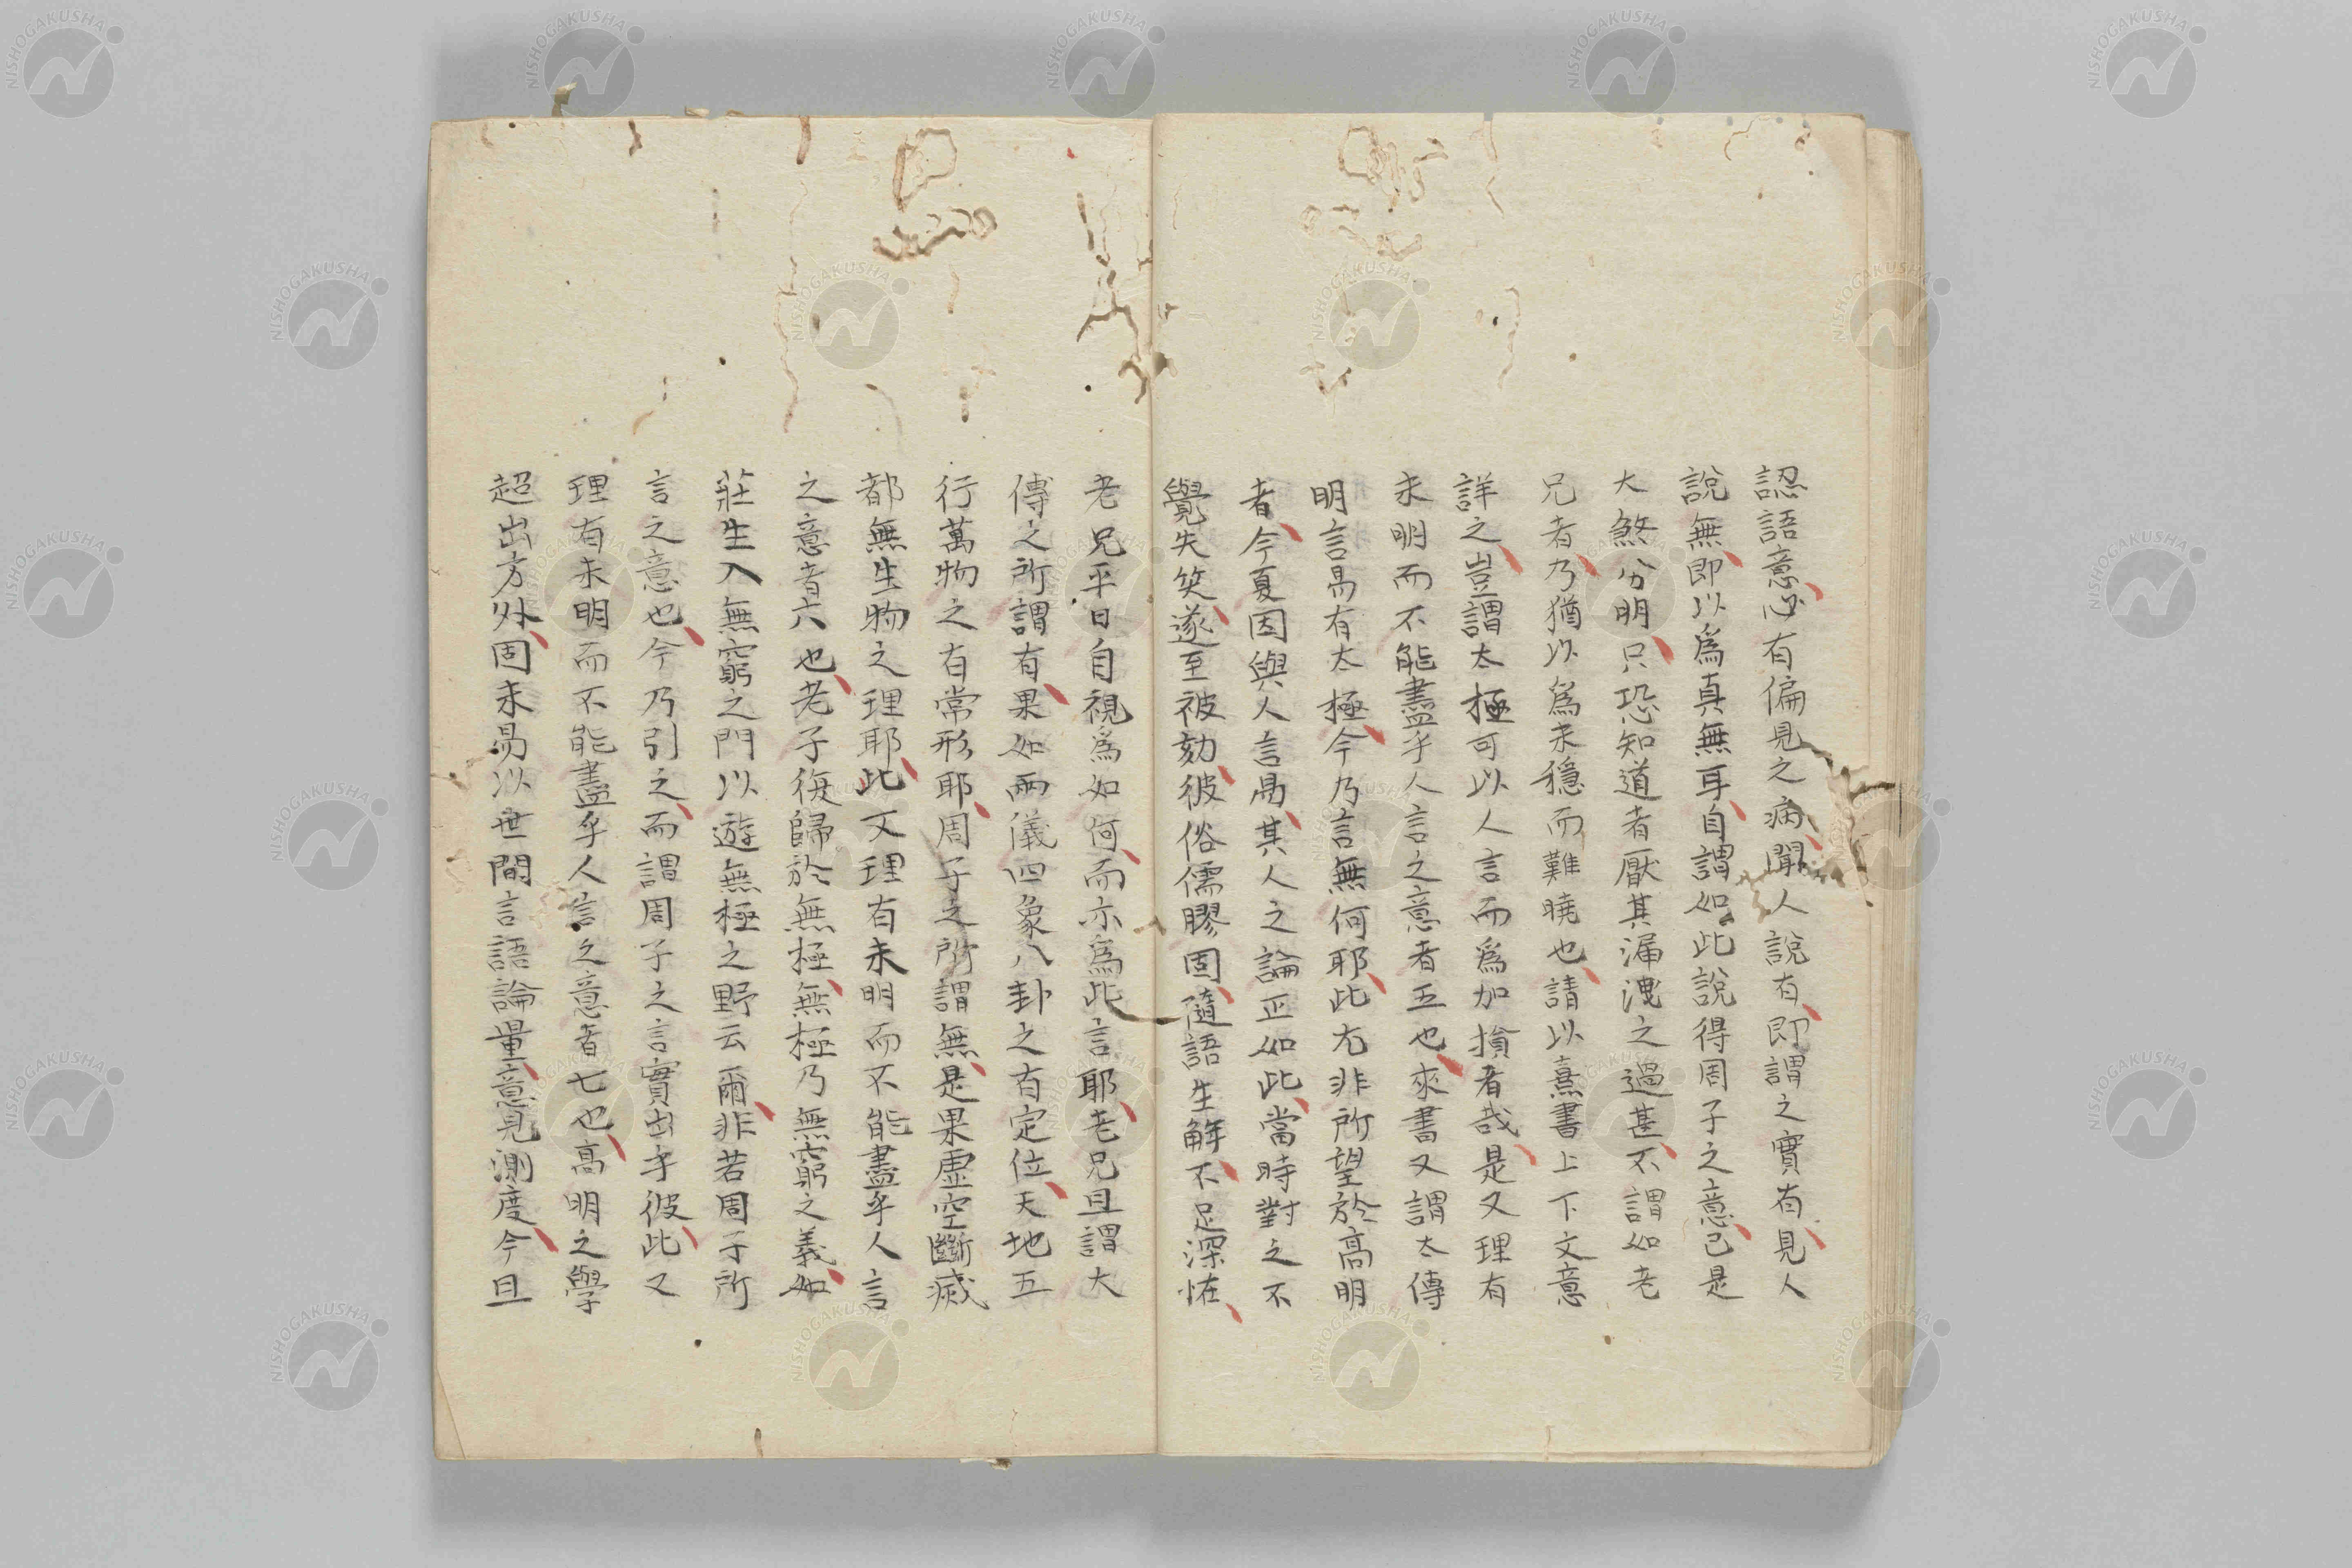 認語意必有偏見之病聞人說有即謂之實有見人
說無即以爲真無耳自謂如此說得周子之意已是
大煞分明只恐知道者厭其漏洩之過甚不謂如老
兄者乃猶以爲未穩而難曉也請以熹書上下文意
詳之豈謂太極可以人言而爲加損者哉是又理有
未明而不能盡乎人言之意者五也來書又謂大傳
明言易有太極今乃言無何耶此尤非所望於高明
者今夏因與人言易其人之論正如此當時對之不
覺失笑遂至被劾彼俗儒膠固隨語生解不足深怪
老兄平日自視爲如何而亦爲此言耶老兄且謂大
傳之所謂有果如兩儀四象八卦之有定位天地五
行萬物之有常形耶周子之所謂無是果虛空斷滅
都無生物之理耶此又理有未明而不能盡乎人言
之意者六也老子復歸於無極無極乃無窮之義如
莊生入無窮之門以遊無極之野云爾非若周子所
言之意也今乃引之而謂周子之言實出乎彼此又
理有未明而不能盡乎人言之意者七也高明之學
超出方外固未易以世間言語論量意見測度今且
NISHOGAKUSHA